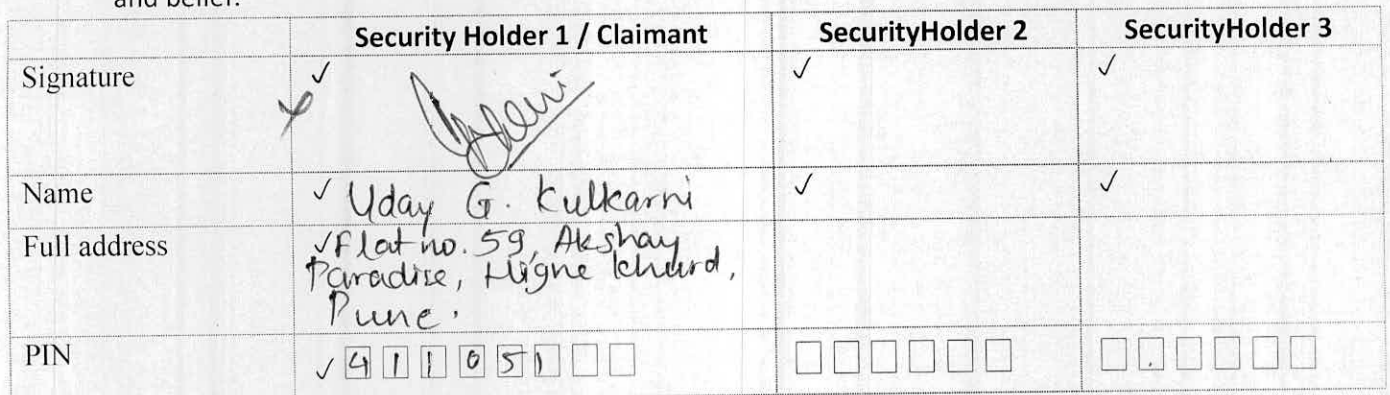 and belief.
Security Holder 1 / Claimant SecurityHolder 2 SecurityHolder 3
Signature ✓ ✓ ✓
Name ✓ Uday G. Kulkarni ✓ ✓
Full address ✓ Flat no. 59, Akshay
Paradise, Higne Khurd,
Pune.
PIN ✓ 411051